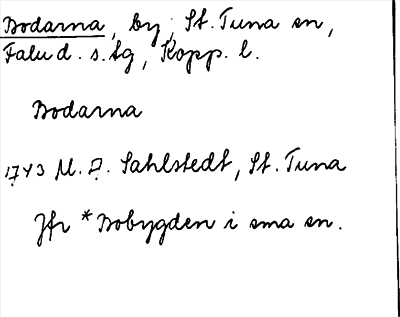 Bodarna, by, St. Tuna sn,
Falu d. s. tg, Kopp. l.
Bodarna
1743 M. A. Sahlstedt, St. Tuna
Jfr *Bobygden i sma sn.